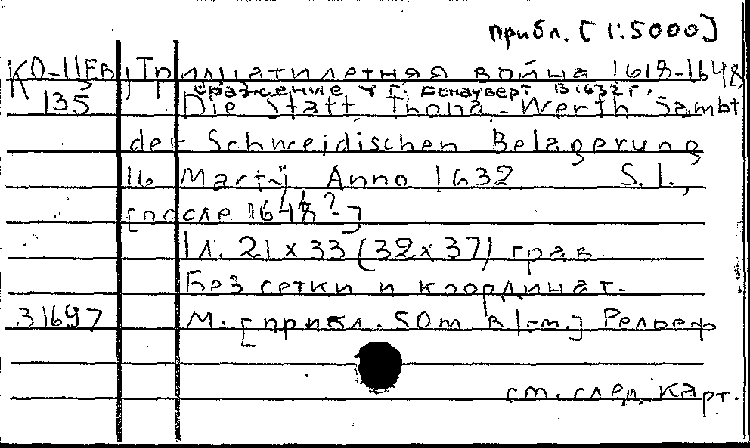 прибл. [1:5000]
КО-11Ев, Тридцатилетняя война 1618-1648
135 сражение у г. Донауверт в 1632 г.
Die Statt Thona-Werth Sambt
der Schweidischen Belagerung
16 Martij Anno 1632 S.l.,
[после 1648?-]
1 л. 21 x 33 (32 x 37) грав
Без сетки и координат.
31697 М. [прибл. 50m в 1cm.] Рельеф
см. след. карт.